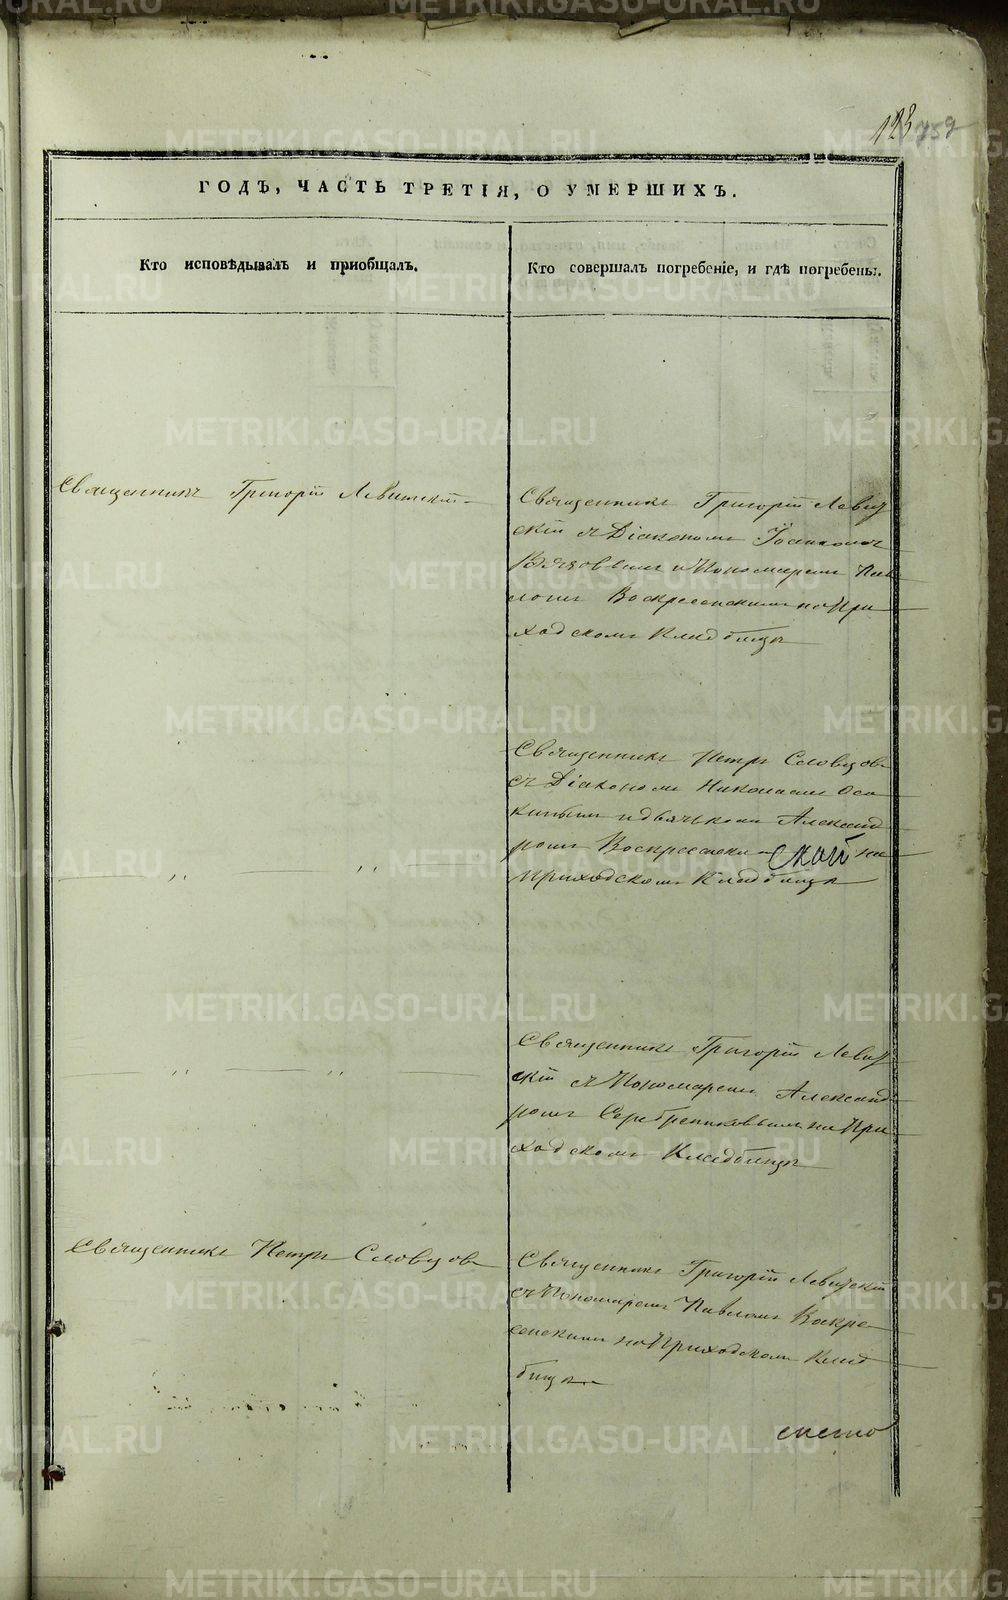 METRIKI.GASO-URAL.RU
123
759
ГОДЪ, ЧАСТЬ ТРЕТІЯ, О УМЕРШИХЪ.
Кто исповѣдывалъ и приобщалъ.
Кто совершалъ погребеніе, и гдѣ погребены.
Священникъ Григорій Левитскій
Священникъ Григорій Левит
скій съ Діакономъ Іоанномъ
и Пономаремъ Пав
ломъ Воскресенскимъ на При
ходскомъ Кладбищѣ
Священникъ Петръ Словцовъ
съ Діакономъ Николаемъ Оса
кинымъ и дьячькомъ Александ
ромъ Воскресенскимъ на
приходскомъ Кладбищѣ
„ „
Священникъ Григорій Левит
скій съ Пономаремъ Александ
ромъ Серебренниковымъ на При
ходскомъ Кладбищѣ
„ „
Священникъ Петръ Словцовъ
Священникъ Григорій Левитскій
съ Пономаремъ Павломъ Воскре
сенскимъ на Приходскомъ Клад
бищѣ